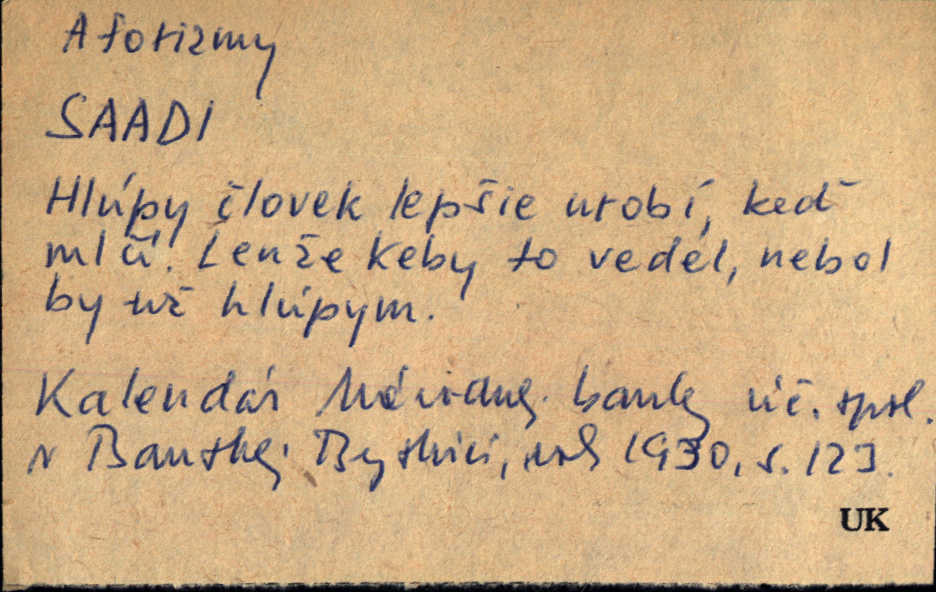 Aforizmy
SAADI
Hlúpy človek lepšie urobí, keď
mlčí. Lenže keby to vedel, nebol
by už hlúpym.
Kalendár Národnej banky úč. spol.
v Banskej Bystrici, rok 1930, s. 123.
UK